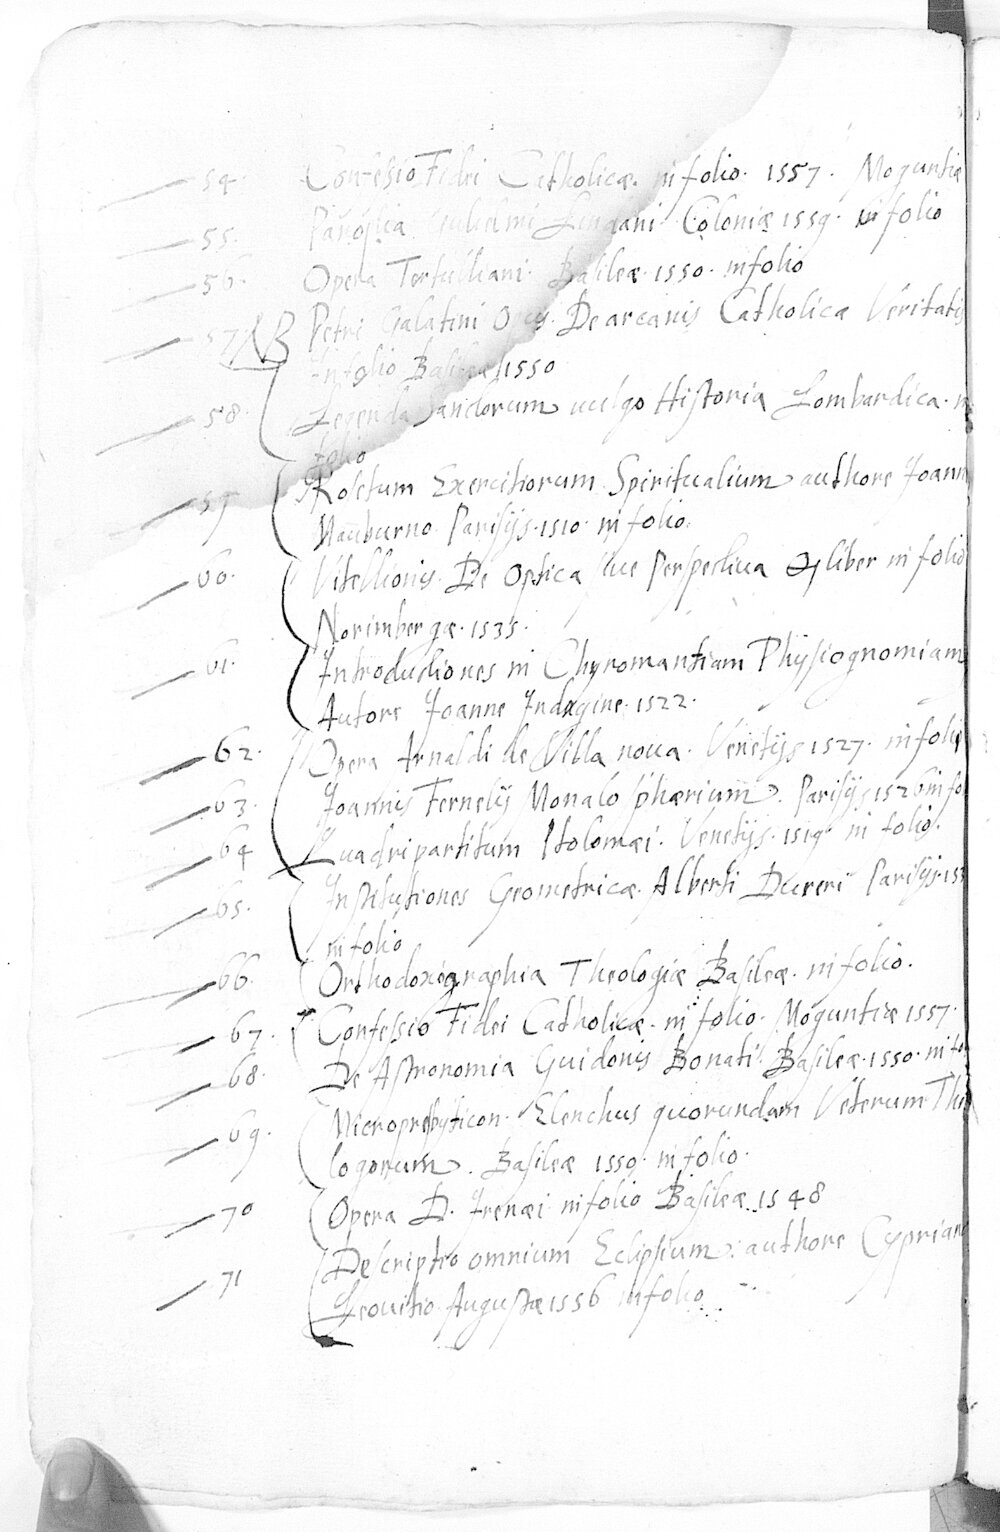 54. Confessio Fidei Catholicæ. in folio. 1557. Moguntiæ
55. Panoplia Gulielmi Lindani Coloniæ 1559. in folio
56. Opera Tertulliani. Basileæ. 1550. in folio
57 NB Petri Galatini Opus. De arcanis Catholicæ Veritatis
In folio Basileæ 1550
58. Legenda Sanctorum vulgo Historia Lombardica. in
folio
59 Rosetum Exercitiorum Spiritualium authore Joann
Mauburno Parisijs. 1510. in folio.
60. Vitellionis. De Optica siue Perspectiua liber in folio
Norimbergæ. 1535.
61. Introductiones in Chyromantiam Physiognomiam
Autore Joanne Indagine. 1522.
62. Opera Arnaldi de Villa noua. Venetijs 1527. in folio
63. Joannis Fernelij Monalosphærium. Parisijs 1526 in fo
64 Quadripartitum Ptolomæi. Venetijs. 1519. in folio.
65. Institutiones Geometricæ Alberti Dureri Parisijs. 153
in folio
66. Orthodoxographia Theologiæ Basileæ. in folio.
67. Confessio Fidei Catholicæ. in folio. Moguntiæ 1557.
68. De Astronomia Guidonis Bonati. Basileæ. 1550. in fo
69. Micropresbyticon. Elenchus quorundam Veterum The
logorum. Basileæ 1550. in folio.
70 Opera D. Irenæi in folio Basileæ. 1548
71 Descriptio omnium Eclipsium. authore Cypriano
Leouitio. Augustæ 1556 in folio